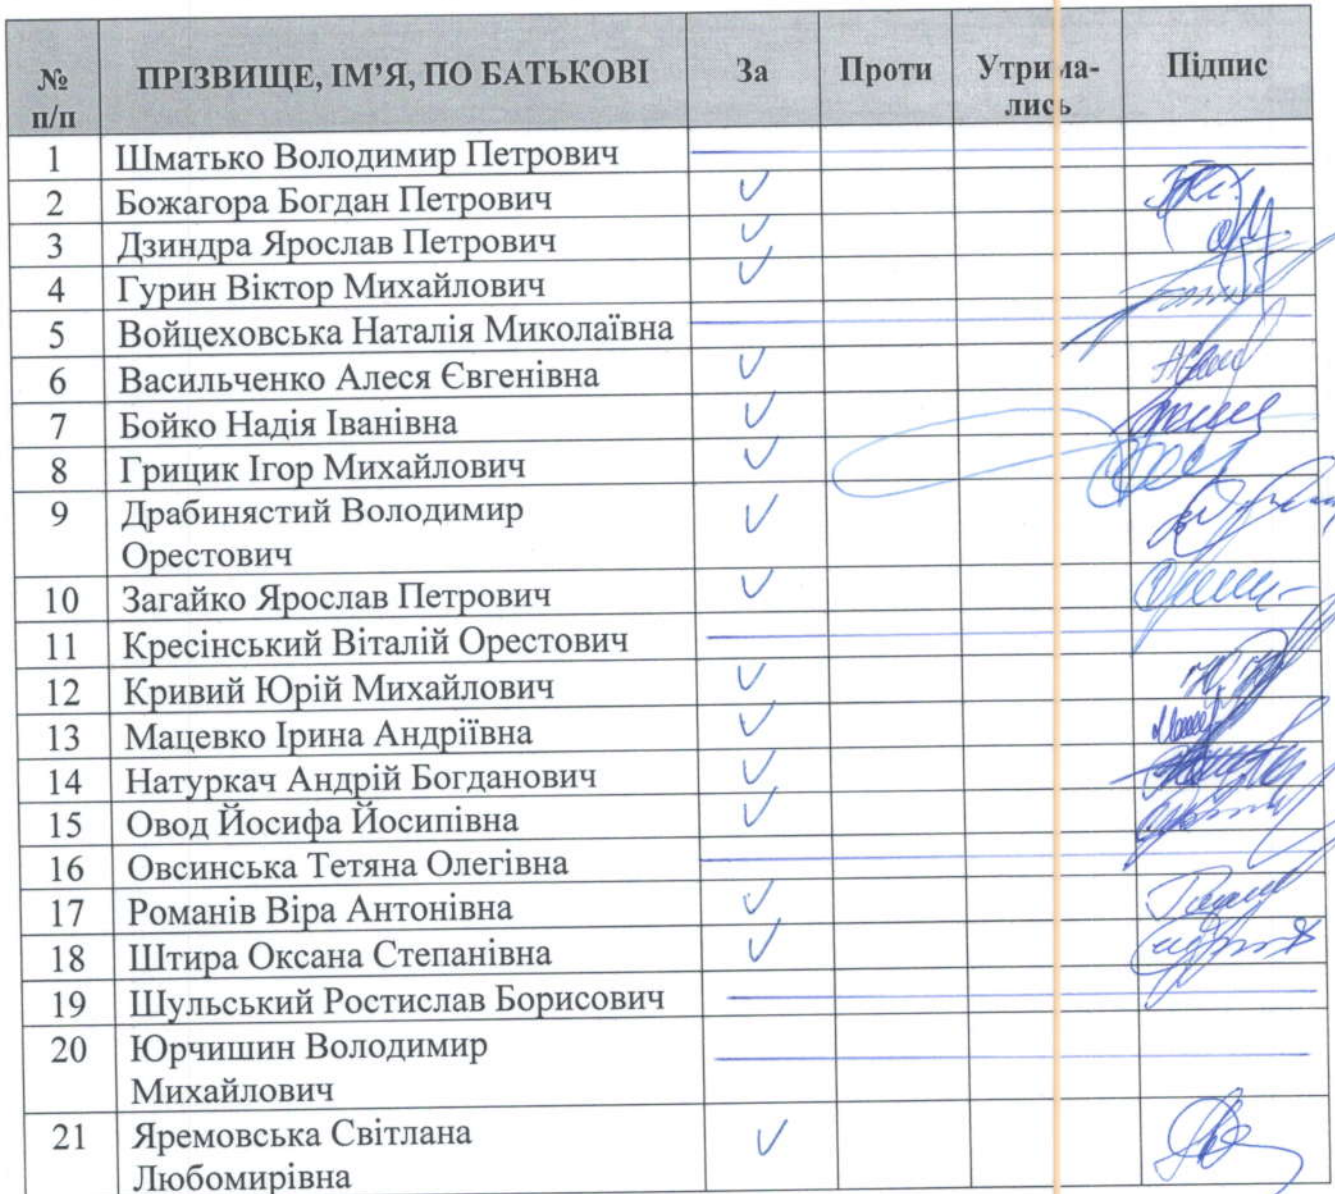 № п/п ПРІЗВИЩЕ, ІМ’Я, ПО БАТЬКОВІ За Проти Утрима-лись Підпис
1 Шматько Володимир Петрович
2 Божагора Богдан Петрович
3 Дзиндра Ярослав Петрович
4 Гурин Віктор Михайлович
5 Войцеховська Наталія Миколаївна
6 Васильченко Алеся Євгенівна
7 Бойко Надія Іванівна
8 Грицик Ігор Михайлович
9 Драбинястий Володимир
Орестович
10 Загайко Ярослав Петрович
11 Кресінський Віталій Орестович
12 Кривий Юрій Михайлович
13 Мацевко Ірина Андріївна
14 Натуркач Андрій Богданович
15 Овод Йосифа Йосипівна
16 Овсинська Тетяна Олегівна
17 Романів Віра Антонівна
18 Штира Оксана Степанівна
19 Шульський Ростислав Борисович
20 Юрчишин Володимир
Михайлович
21 Яремовська Світлана
Любомирівна